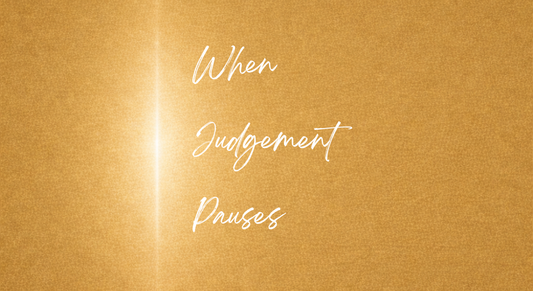 When
Judgement
Pauses